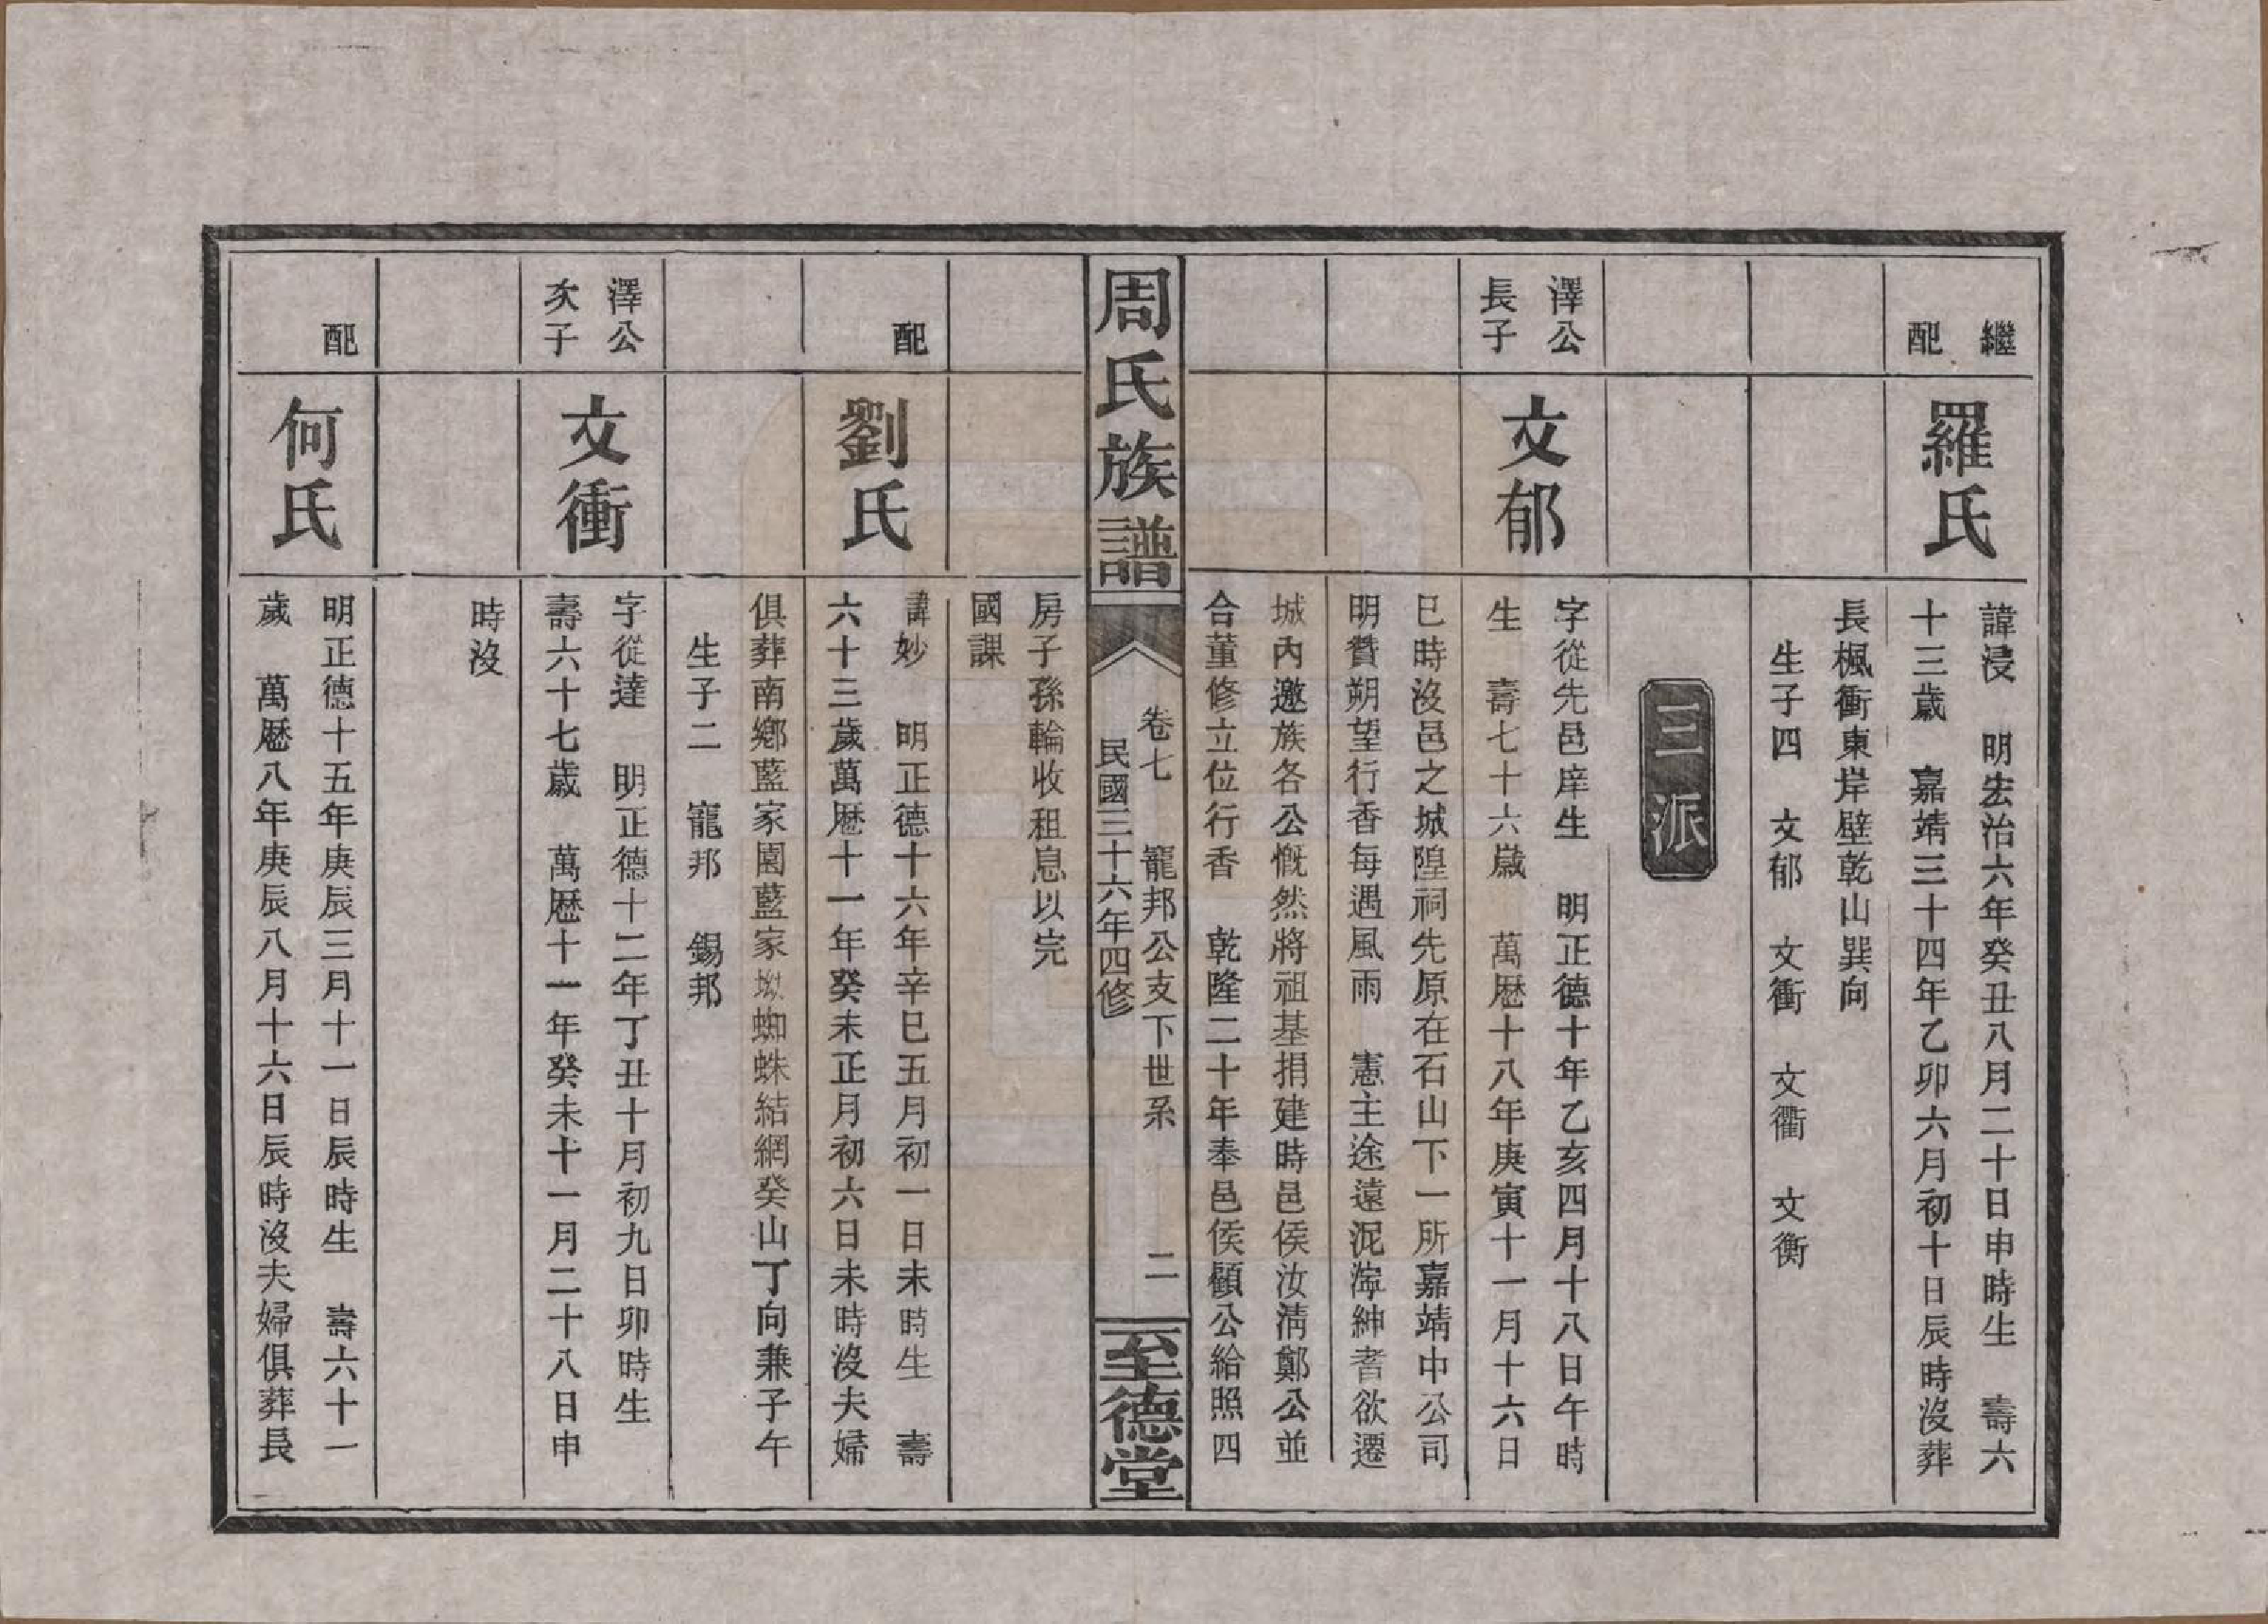 繼
配
羅氏
諱浸　明宏治六年癸丑八月二十日申時生　壽六
十三歲　嘉靖三十四年乙卯六月初十日辰時沒葬
長楓衝東岸壁乾山巽向
生子四　文郁　文衝　文衢　文衡
三派
澤公
長子
文郁
字從先邑庠生　明正德十年乙亥四月十八日午時
生　壽七十六歲　萬厯十八年庚寅十一月十六日
巳時沒邑之城隍祠先原在石山下一所嘉靖中公司
明贊朔望行香每遇風雨　憲主途遠泥濘紳耆欲遷
城內邀族各公慨然將祖基捐建時邑侯汝清鄭公並
合董修立位行香　乾隆二十年奉邑侯顧公給照四
周氏族譜
卷七　籠邦公支下世系　二
民國三十六年四修
至德堂
房子孫輪收租息以完
國課
配
劉氏
諱妙　明正德十六年辛巳五月初一日未時生　壽
六十三歲萬厯十一年癸未正月初六日未時沒夫婦
俱葬南鄉藍家園藍家坳蜘蛛結網癸山丁向兼子午
生子二　寵邦　錫邦
澤公
次子
文衝
字從達　明正德十二年丁丑十月初九日卯時生
壽六十七歲　萬厯十一年癸未十一月二十八日申
時沒
配
何氏
明正德十五年庚辰三月十一日辰時生　壽六十一
歲　萬厯八年庚辰八月十六日辰時沒夫婦俱葬長